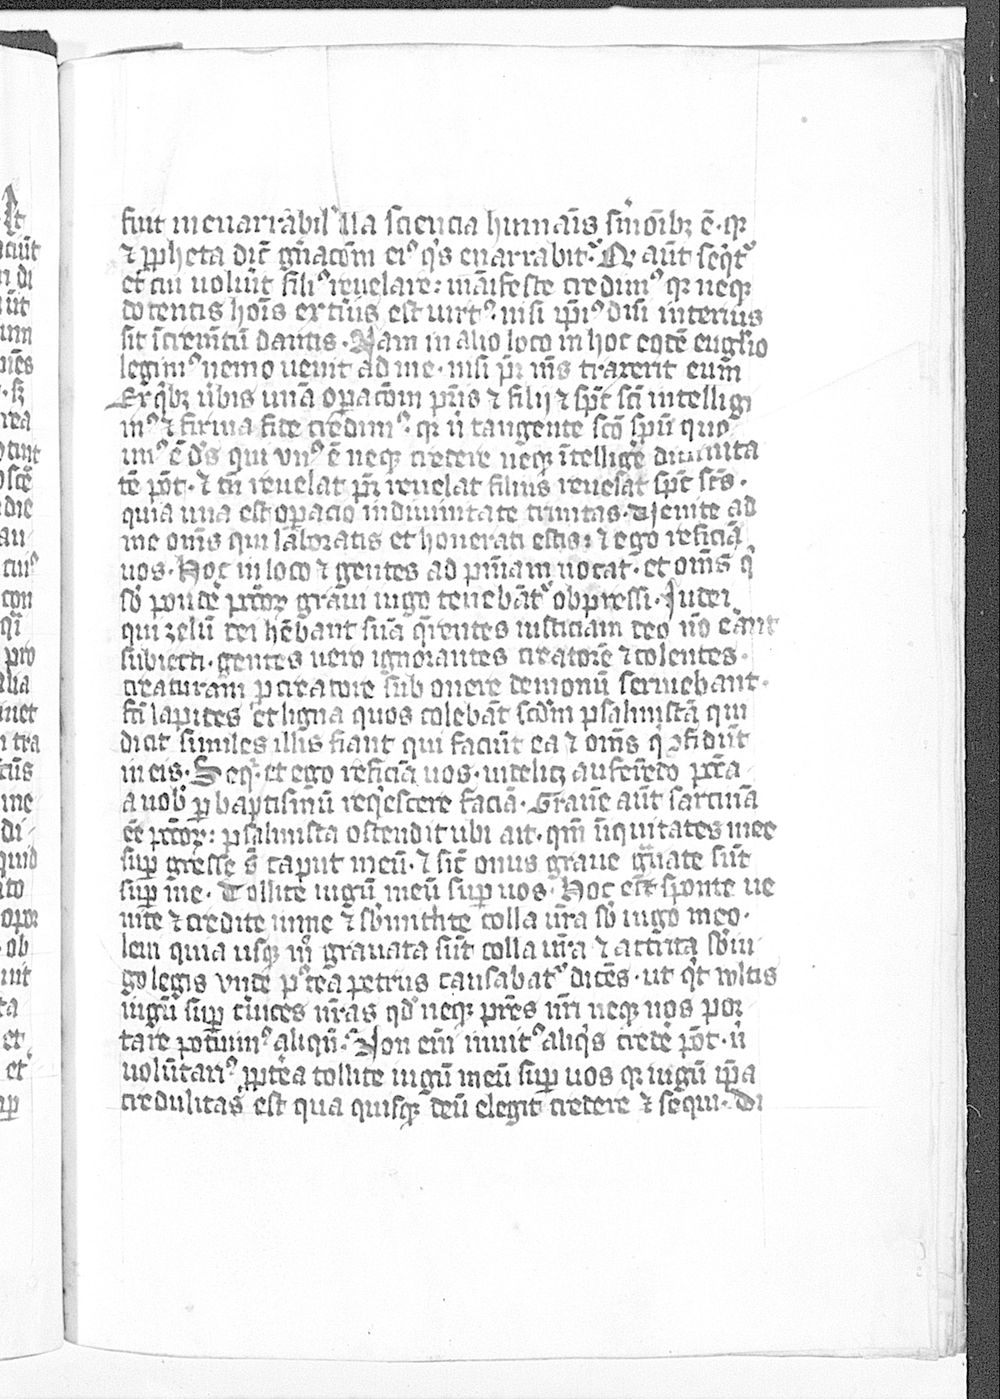 fuit inenarrabil' ꝉla sciencia humaīs sm̄oībꝫ ē · qꝛ
⁊ ꝓpheta dic̄ gn̄acōm eiꝰ qͥs enarrabit · Qꝫ aūt seqͥtᷣ
et cui voluīt filiꝰ reuelare : maīfeste credimꝰ qꝛ neqꝫ
docentis hoīs exteriꝰ est virtꝰ · nisi ip̄iꝰ dn̄i interius
sit īcrem̄tū dantis · Nam in alio loco in hoc eodē eugl̄io
legimꝰ nemo uenit ad me · nisi pr̄ m̄s traxerit eum̄
Ex qͥbꝫ ūbis vnā oꝑacōm pr̄is ⁊ filij ⁊ sp̄c sc̄i intelligi
mꝰ ⁊ firma fide credimꝰ · qꝛ ñ tangente scō sp̄u quo
niꝰ ē dˢ qui vnꝰ ē neqꝫ credere neqꝫ ītelligͤe diuinita
tē pōt · ⁊ cū reuelat pr̄ reuelat filius reuelat sp̄c sc̄s ·
quia una est oꝑacio indiuinitate trinitas · Venite ad
me om̄s qui laboratis et honerati estis : ⁊ ego reficiā
uos · Hoc in loco ⁊ gentes ad pn̄iam uocat · et om̄s qͥ
sb̄ pondͤe pctōꝝ graui iugo tenebātᷣ obpressi · Iudei
qui zelū dei hēbant suā qͥrentes iusticiam deo nō eāt
subiecti · gentes uero ignorantes creatorē ⁊ colentes ·
creaturam ꝓ creatore sub onere demonū seruiebant ·
fc̄i lapides et ligna quos colebāt scd̄m psalmistā qui
dicit similes illis fiant qui faciūt ea ⁊ om̄s qͥ ꝯfidūt
in eis · Seqͥ · et ego reficiā uos · videlicꝫ auferēdo pctā
a uobˢ ꝑ baptismū reqͥescere faciā · Graue aūt sarcinā
eē pctōꝝ : psalmista ostendit ubi ait · qm̄ īiquitates mee
suꝑ gresse sūt caput meū · ⁊ sic̄ onus graue gͣuate sūt
suꝑ me · Tollite iugū meū suꝑ uos · Hoc est sponte ue
nite ⁊ credite inme ⁊ sb̄mittite colla ur̄a sb̄ iugo meo ·
lem quia usqꝫ mͦ grauata sūt colla ur̄a ⁊ attrita sb̄iu
go legis vnde pꝰtea petrus causabatᷣ dicēs · ut qͥd vultis
iugū suꝑ cͥuices nr̄as qdˢ neqꝫ pr̄es nr̄i neqꝫ nos por
tare potuimꝰ aliqn̄ · Non eīm inuitꝰ aliqͥs credͤe pōt · ñ
volūtariꝰ ꝓpͭea tollite iugū meū suꝑ uos qꝛ iugū ip̄a
credulitas est qua quisqꝫ deū elegit credere ⁊ sequi · Di